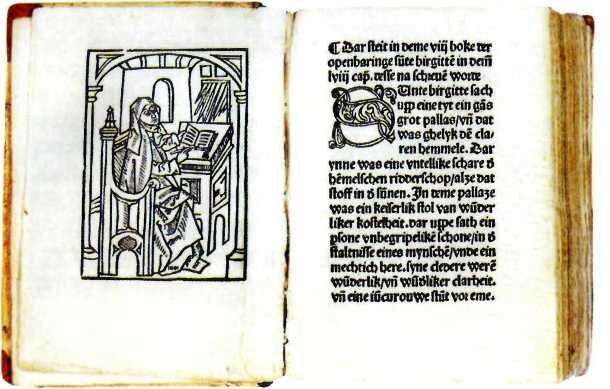 ¶ Dar steit in deme viij boke der
openbaringe sūte birgittē in dem̄
lviij cap. desse na screuē worte
SUnte birgitte sach
upp eine tyt ein gās
grot pallas/vn̄ dat
was ghelyk dē cla-
ren hemmele. Dar
ynne was eine vntellike schare d̄
hēmelschen ridderschop/alze dat
stoff in d̄ sūnen. In deme pallaze
was ein keiserlik stol van wūder
liker kostelheit. dar uppe sath ein
psone vnbegripelikē schone/in d̄
staltnisse eines mynschē/vnde ein
mechtich here. syne cledere werē
wūderlik/vn̄ wūd̄liker clarheit.
vn̄ eine iūcurouwe stūt vor eme.